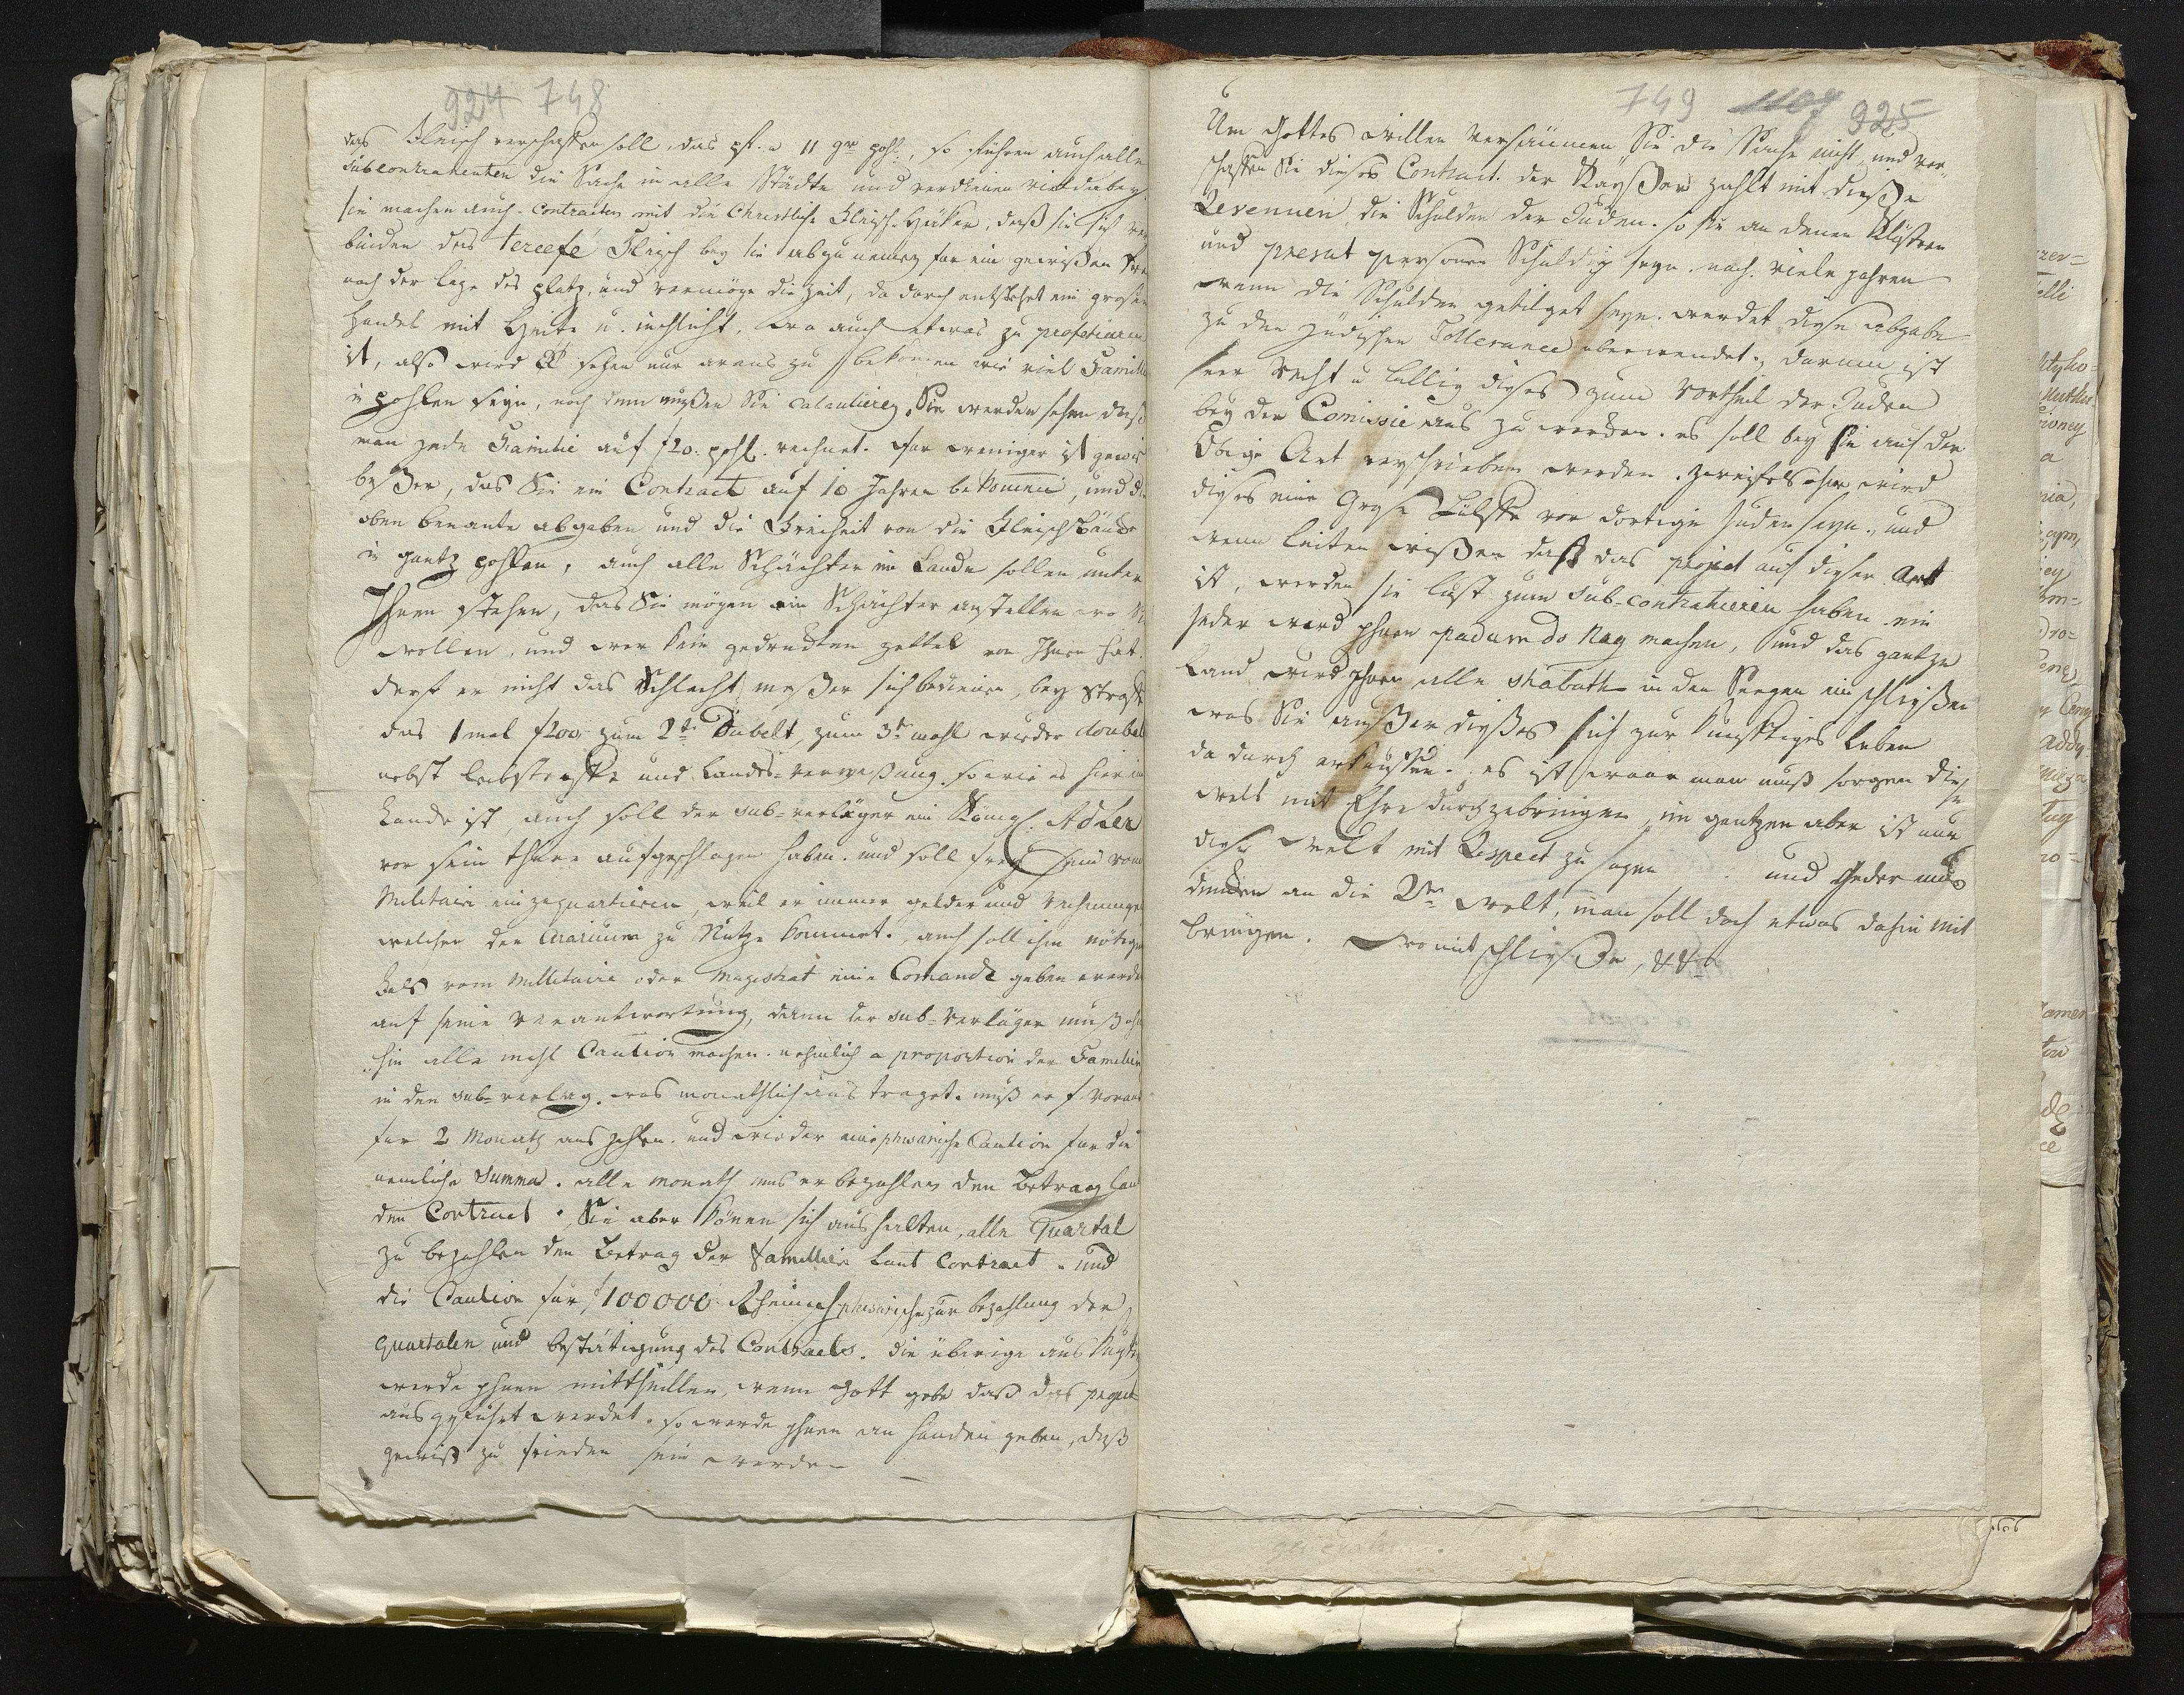 924 748
das Fleisch verschaffen soll, das pf. a 11 gr pohl., so führen auch alle
Subcontrahenten die Sache in alle Städte und verdienen viel dabey
sie machen auch Contracten mit die Christliche Fleisch-Häker, daß sie sich ver
binden das tereefé Fleisch bey sie abzunemen für ein gewissen
nach der Lage des platz, und vermöge die Zeit, da durch entstehet ein grosser
Handel mit Heite u. inschlicht, wo auch etwas zu profetieren
ist, also wird sehen nur heraus zu bekomen wie viel Famill
in pohlen seyn, nach dem müßen Sie calculieren, Sie werden sehen daß
man jede Familie auf f 20. pohl. rechnet. für weniger ist gewis
beßer, das Sie ein Contract auf 10 Jahren bekommen, und die
oben benante abgaben und die Freiheit von die Fleischbände
in gantz pohlen, auch alle Schächter im Lande sollen unter
Ihnen stehen, das Sie mögen ein Schächter anstellen wo
wollen, und wer kein gedruckten zettel von Ihnen hat.
darf er nicht das Schlacht meßer sich bedienen, bey straffe
das 1 mal f 200 zum 2te Dubelt, zum 3te mahl wieder doubel
nebst leibstraffe und Landes-verweßung. so wie es hier im
Lande ist, auch soll der sub-verläger ein Königl. Adler
vor sein thüre aufgeschlagen haben. und soll frey sein vom
Militair einzequartieren, weil er immer gelder und rechnungen
welcher den Erarium zu Nutze kommet. auch soll ihm nötigen
fals vom Millitaire oder Magistrat eine Comande geben werden
auf seine verantwortung, denn der sub-verläger muß
hin alle mahl Caution machen. nehmlich a proportion der Familie
in den sub-verlag. was monathlich aus traget. muß er f. voraus
für 2 Monath aus zahlen. und wieder eine Caution für die
nemliche Summa. alle monath mus er bezahlen den Betrag laut
den Contract. Sie aber können sich aushalten, alle Quartal
zu bezahlen den Betrag der Famillien laut Contract. und
die Caution für f 100000 Rheinisch zur bezahlung der
Quartalen und bestätigung des Contracts. die übrige aus
werde Ihnen mittheillen, wenn Gott gebe daß das project
ausgeführt werdet. so werde Ihnen an Handen geben, daß
gewiß zu frieden sein werden
749 1107 925
Um Gottes willen versäumen Sie die Sache nicht und ver
schaffen Sie dieses Contract. der Kayßer zahlt mit dieße
Revenuen die Schulden der Juden. so sie an denen Klöstern
und preiat personen Schuldig seyn. nach viele Jahren
wenn die Schulden getilget seyn. werdet diese abgabe
zu den Jüdischen Tollerance überwendet, darum ist
sehr Recht u billig dieses zum Vortheil der Juden
bey der Comissie aus zu werden. es soll bey sie auf der
Obige Art verschrieben werden. zweifelsohne wird
dieses eine Große Hülffe vor dortige Juden seyn, und
wenn leiten wißen daß das project auf dieser Art
ist, werden sie lust zum Sub-contrahieren haben ein
jeder werd Ihnen padam do Nag machen, und das gantze
Land wird Ihnen alle Shabath in den Seegen ein schließen
was Sie außer dieses sich zur künfftiges leben
da durch erkauffen. es ist war man muß sorgen diese
welt mit Ehre durchzebringen, im gantzen aber ist nur
diese Welt mit Respect zu sagen . und Jeder mus
denken an die 2te Welt, man soll doch etwas dahin mit
bringen. womit schließe,